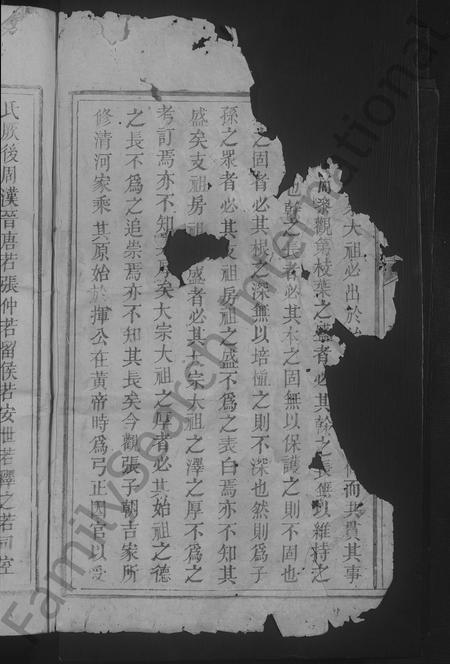 大祖必出於
而共貫其事
觀第枝葉之盛者必其幹之長無以維持之
也幹之長者必其本之固無以保護之則不固也
之固者必其根之深無以培植之則不深也然則為子
孫之眾者必其支祖房祖之盛不為之表白焉亦不知其
盛矣支祖房祖盛者必其大宗大祖之澤之厚不為之
考訂焉亦不知矣大宗大祖之厚者必其始祖之德
之長不為之追崇焉亦不知其長矣今觀張子朝吉家所
修清河家乘其原始於揮公在黃帝時為弓正因官以受
氏厥後周漢晉唐若張仲若留侯若安世若釋之若司空
FamilySearch International